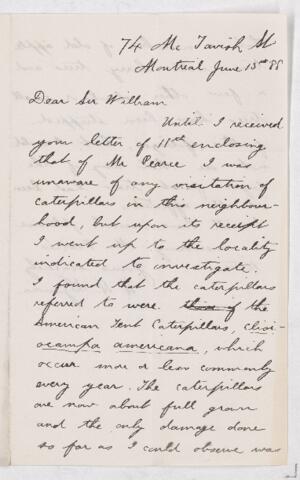 74 Mc Tavish St
Montreal June 13th 88
Dear Sir William
Until I received
your letter of 11th enclosing
that of Mr Pearce I was
unaware of any visitation of
caterpillars in this neighbour-
hood, but upon its receipt
I went up to the locality
indicated to investigate.
I found that the caterpillars
referred to were those of the
American Tent Caterpillars, clisi-
ocampa americana, which
occur more or less commonly
every year. The caterpillars
are now about full grown
and the only damage done
so far as I could observe was